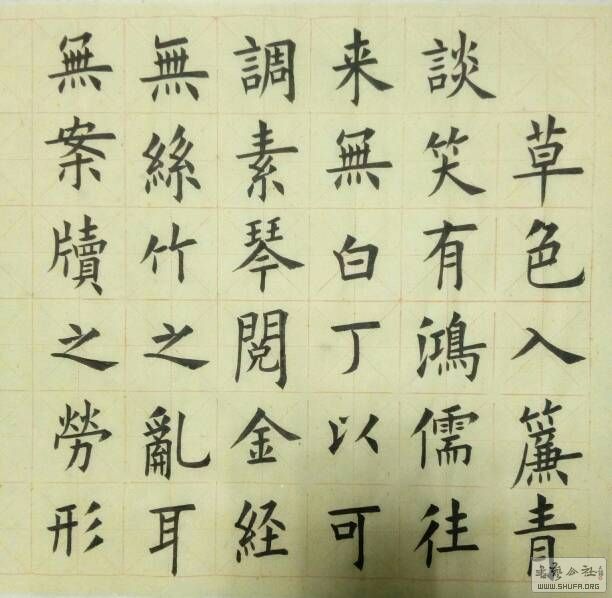 草色入簾青
談笑有鴻儒往
来無白丁以可
調素琴閲金経
無絲竹之亂耳
無案牘之勞形
WWW.SHUFA.ORG